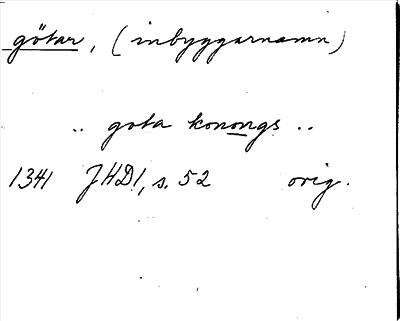 götar, (inbyggarnamn)
.. gota konongs ..
1341 JHD1, s. 52 orig.